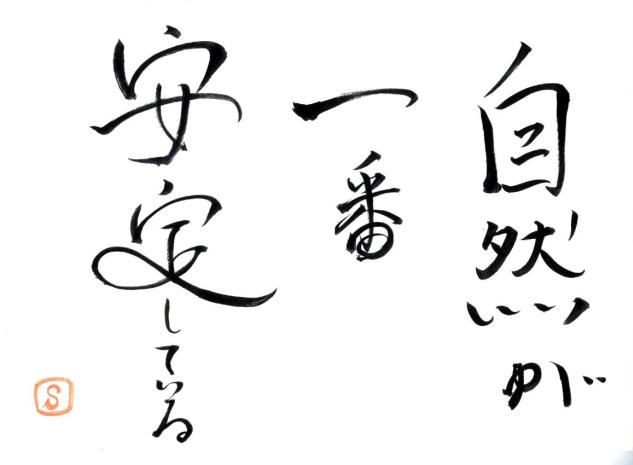 自然が
一番
安定している
S